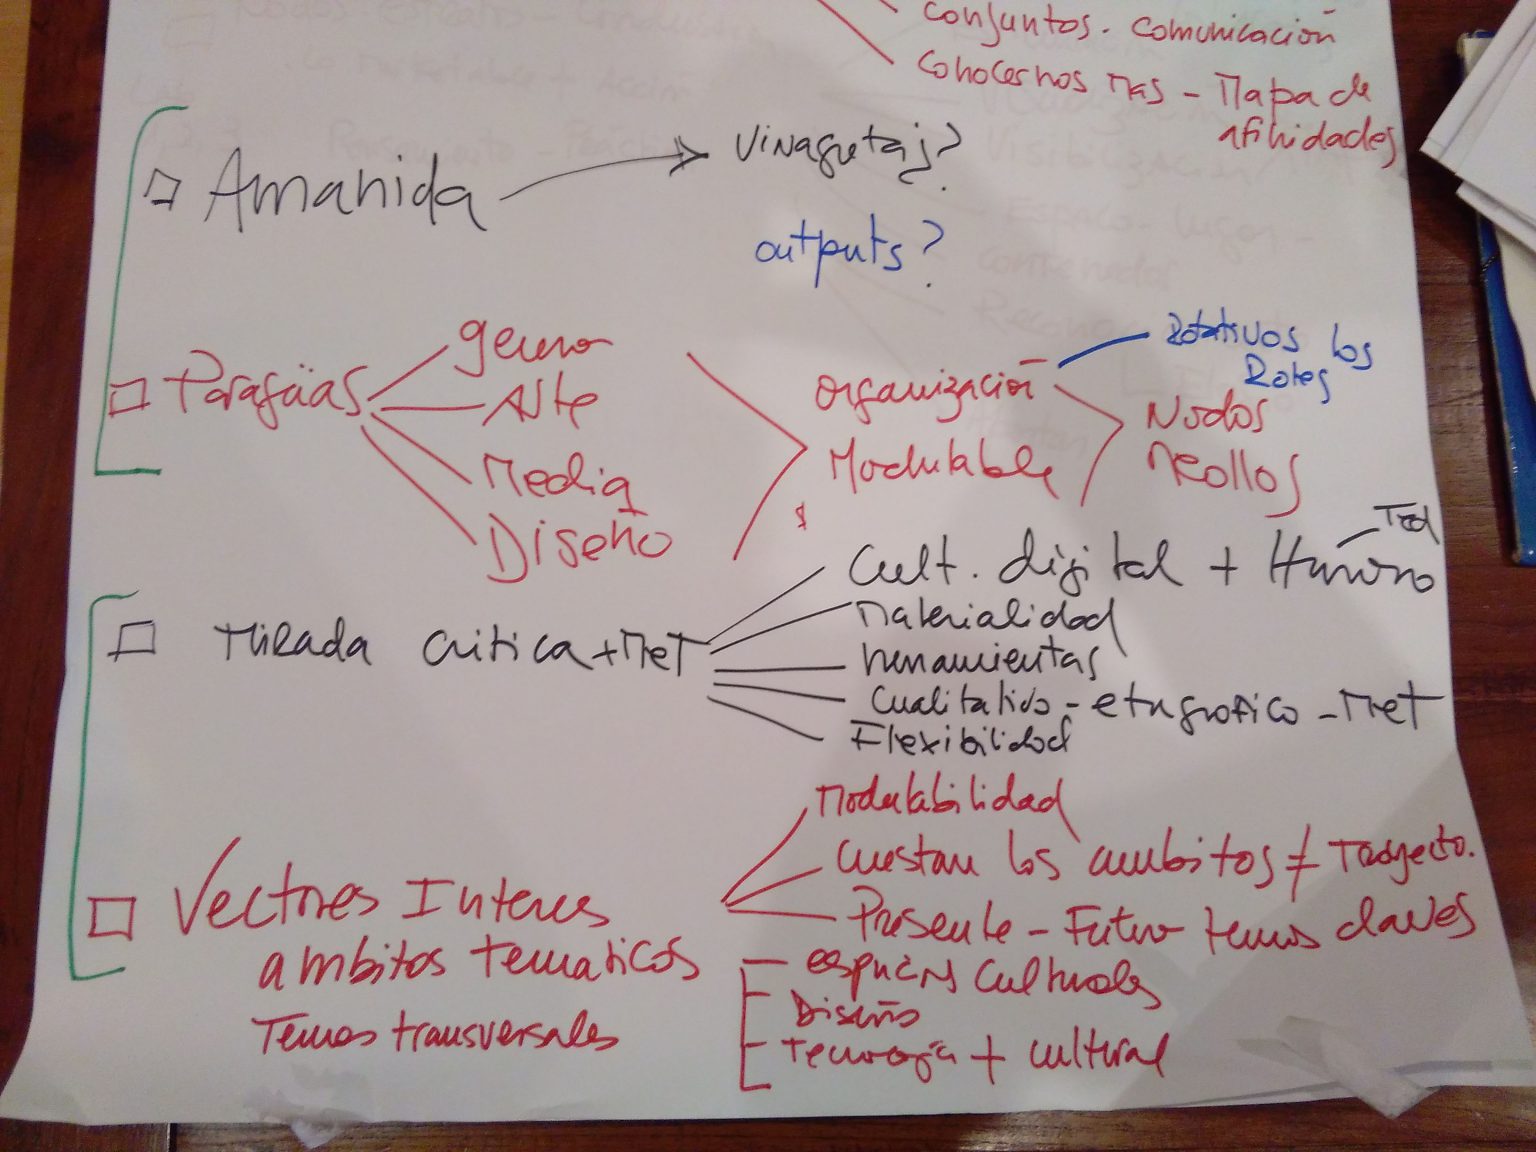 conjuntos. comunicación
conocernos mas - Mapa de
afinidades
Amanida
vinagretas?
outputs?
Paragüas
genero
Arte
Media
Diseño
organización
Modulable
Rotativos los
Roles
Nodos
Meollos
Mirada critica + MeT
Cult. digital + Humano
Materialidad
herramientas
Cualitativo - etnografico - MeT
Flexibilidad
Vectores Interes
ambitos tematicos
Temas transversales
Modulabilidad
los ambitos ≠ Trayecto.
Presente - Futuro temas claves
Culturales
Diseño
Tecnología + cultural